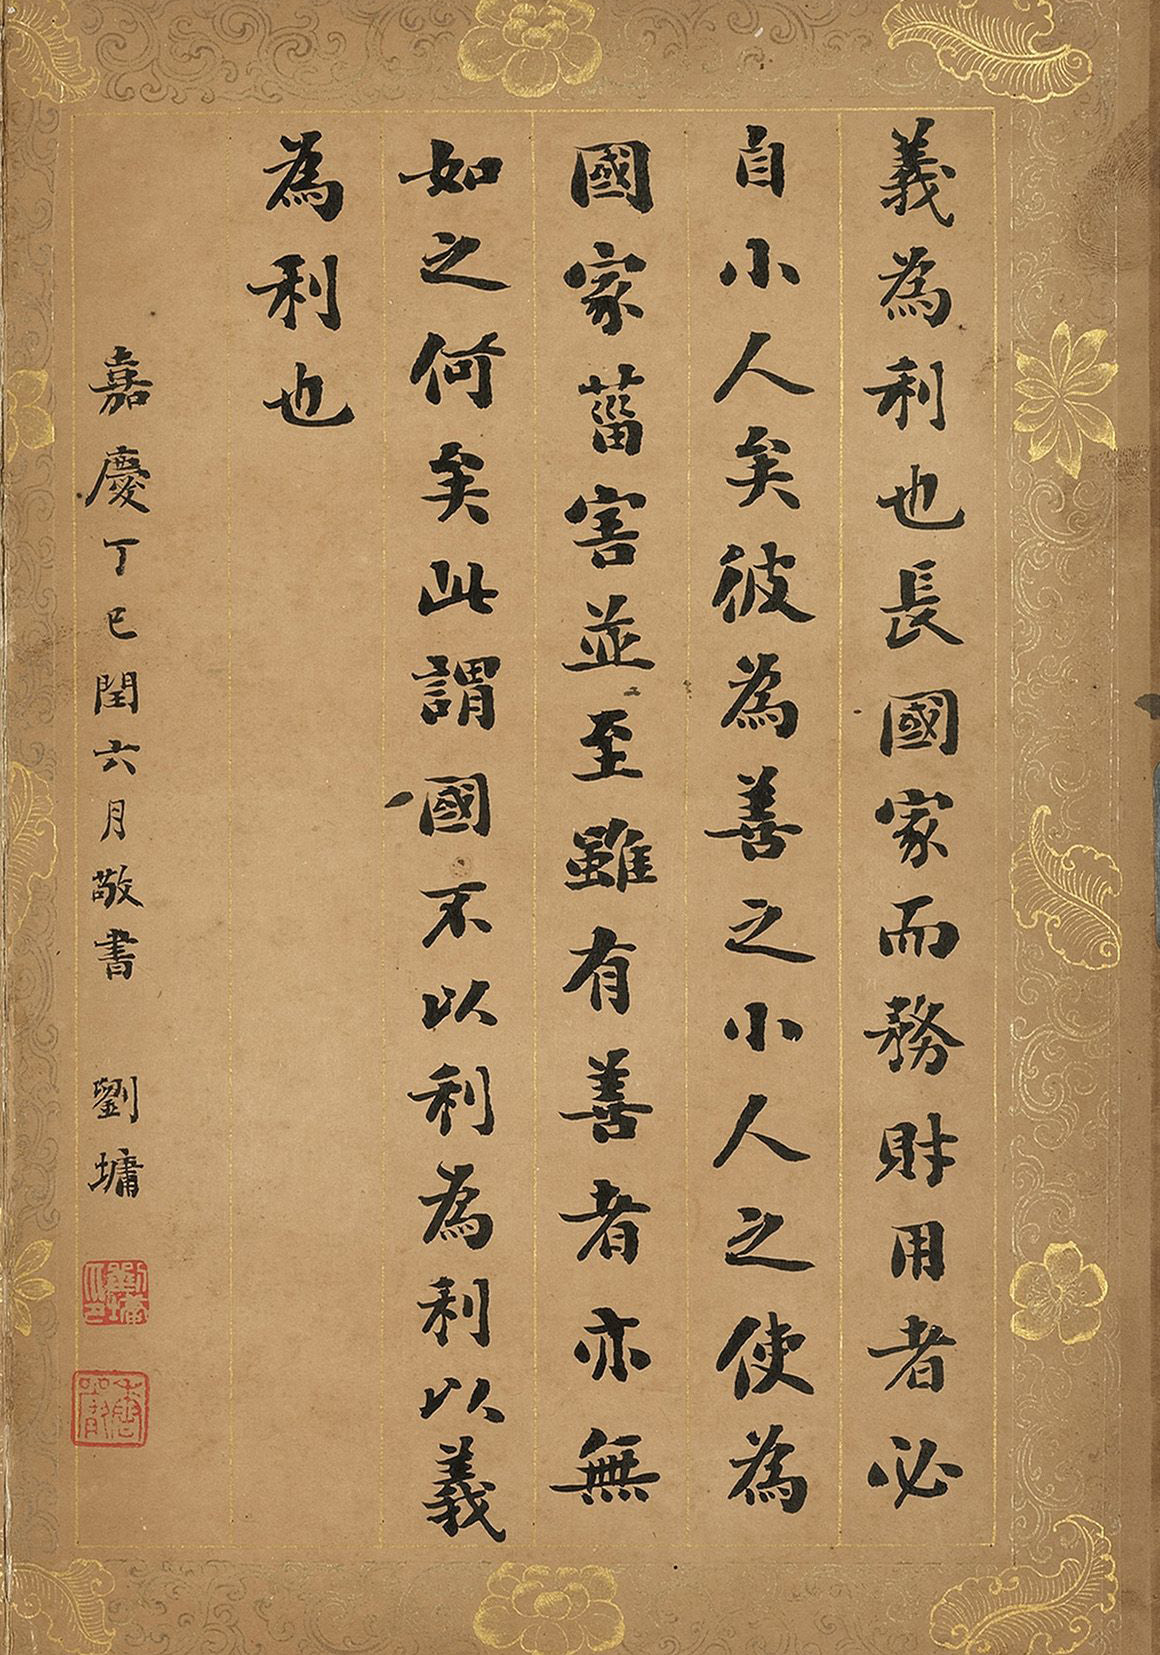 義為利也長國家而務財用者必
自小人矣彼為善之小人之使為
國家菑害並至雖有善者亦無
如之何矣此謂國不以利為利以義
為利也
嘉慶丁巳閏六月敬書 劉墉